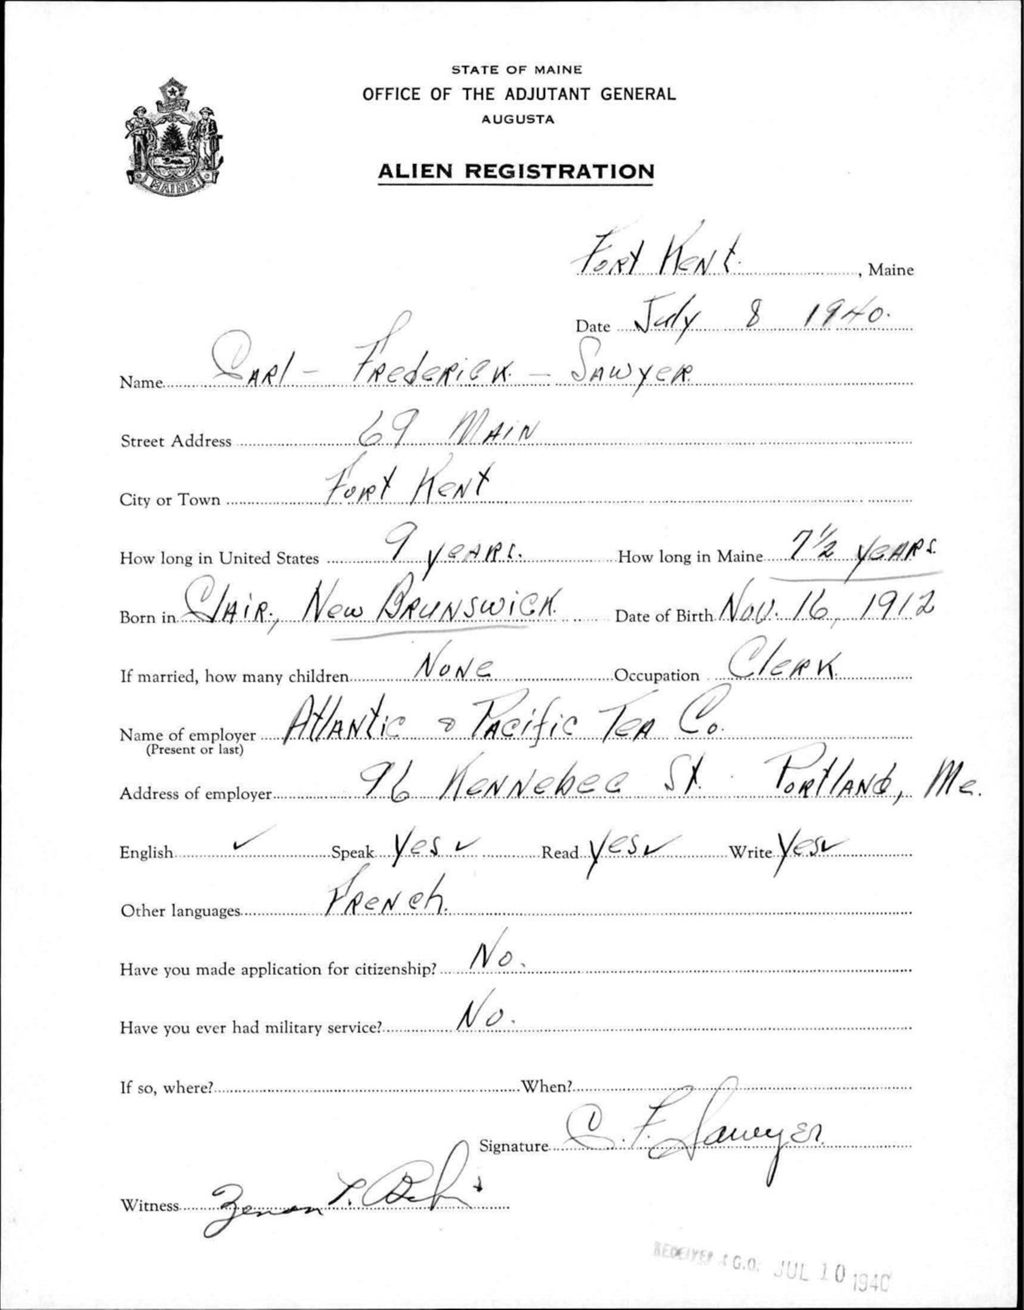 STATE OF MAINE
OFFICE OF THE ADJUTANT GENERAL
AUGUSTA
ALIEN REGISTRATION
MAINE
Fort Kent, Maine
Date July 8 1940.
Name Carl - Frederick - Sawyer
Street Address 69 Main
City or Town Fort Kent
How long in United States 9 years. How long in Maine 7 1/2 years.
Born in Clair, New Brunswick. Date of Birth Nov. 16, 1912
If married, how many children None Occupation Clerk
Name of employer Atlantic & Pacific Tea Co.
(Present or last)
Address of employer 96 Kennebec St. Portland, Me.
English ✓ Speak Yes ✓ Read Yes ✓ Write Yes ✓
Other languages French.
Have you made application for citizenship? No.
Have you ever had military service? No.
If so, where? When?
Signature C. F. Sawyer
Witness Zenon
RECEIVED A.G.O. JUL 10 1940